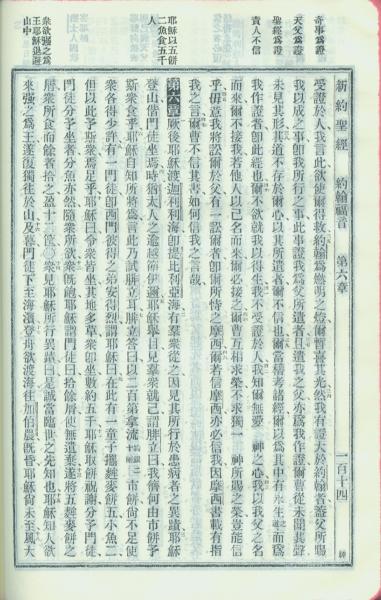 新約聖經 約翰福音 第六章 一百十四 神
奇事為證
天父為證
聖經為證
責人不信
耶穌以五餅
二魚食五千
人
眾欲強之為
王耶穌退避
山中
受證於人我言此欲使爾得救約翰為燃明之燈爾暫喜其光然我有證大於約翰者蓋父所賜
我以成之事即我所行之事此事證我為父所遣者且遣我之父亦為我作證爾曹從未聞其聲
未見其形其道不存於爾心以其所遣者爾不信也爾當稽考諸經爾以為其中有永生而為
我作證者即此經也爾不欲就我以得生我不受證於人我知爾無愛 神之心我以我父之名
而來爾不接我若他人以己名而來爾必接之爾曹互相求榮不求獨一 神所賜之榮豈能信
乎毋意我將訟爾於父有一訟爾者即爾所恃之摩西爾若信摩西亦必信我因摩西書載有指
我之言爾曹不信其書如何信我之言哉
第六章 厥後耶穌渡迦利利海即提比利亞海有羣眾從之因見其所行於患病者之異蹟耶穌
登山偕門徒坐焉時猶太人之逾越節伊邇耶穌舉目見羣眾就己謂腓立曰我儕何由市餅予
斯眾食乎耶穌自知所將為言此乃試腓立耳腓立答曰以二百第拿流 市餅尚不足使
眾各得少許有一門徒即西門彼得之弟安得烈謂耶穌曰在此有一童子攜麰麥餅五小魚二
但以此予斯眾焉足乎耶穌曰令眾皆坐其地多草眾即坐數約五千耶穌取餅祝謝分予門徒
門徒分予坐者分魚亦然隨眾所欲眾既飽耶穌謂門徒曰拾餘屑使無遺棄遂將五麰麥餅之
屑眾所食而餘者拾之盈十二筐○眾見耶穌所行異蹟曰是誠當臨世之先知也耶穌知人欲
來強之為王遂復獨往於山及暮門徒下至海濱登舟欲渡海往加伯農既昏耶穌尚未至風大